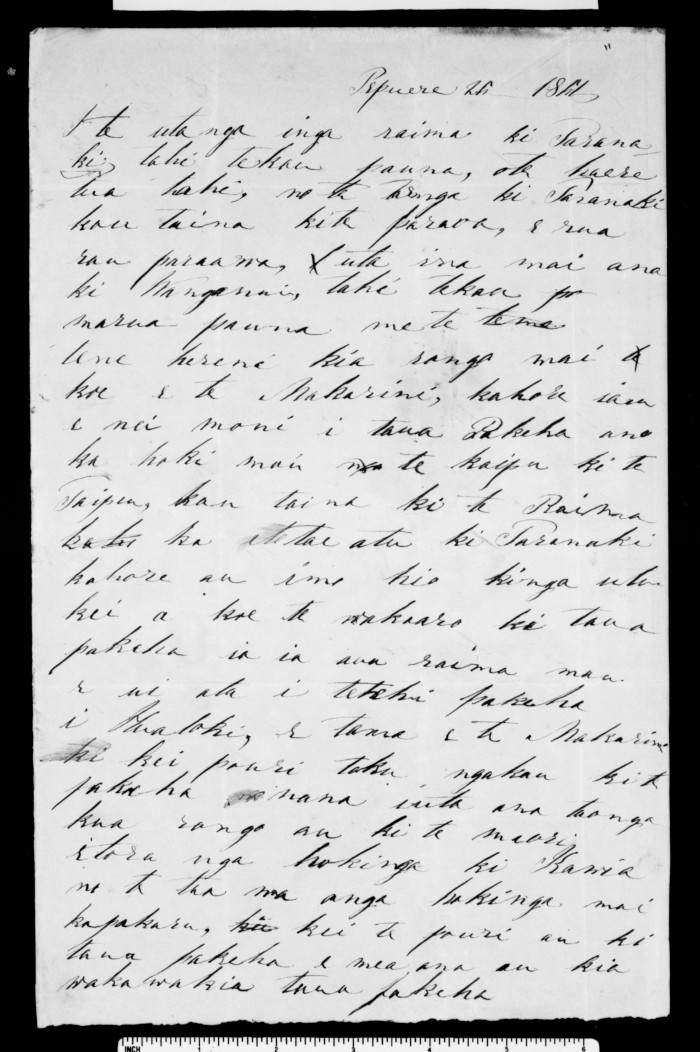 Pepuere 25 1851
I te utanga inga raima ki Tarana
ki, tahi tekau pauna, ote
tua tahi, no te ki Taranaki
kau taina kite paraoa, e rua
rau paraawa, uta ina mai ana
ki Wanganui, tahi tekau po
marua pauna me te teme
tene hereni kia rongo mai
koe e te Makarini, kahore iaau
e nei moni i taua Pakeha ano
ka hoki mai te kaipu ki te
Taipu, kau taina ki te Raima
ka tae atu ki Taranaki
kahore au imo hio kinga utu
kei a koe te wakaaro ki taua
pakeha ia ia aua raima mau
e ui atu i tetehi pakeha
i Huatoki, e tama e te Makarini
ki kei pouri toku ngakau kite
pakeha nana iuta ana taonga
kua rongo au ki te maori
etoru nga hokinga ki Kawia
no te tua wa anga hokinga mai
kapakaru, kei te pouri au ki
taua pakeha e mea ana au kia
wakawakia taua pakeha